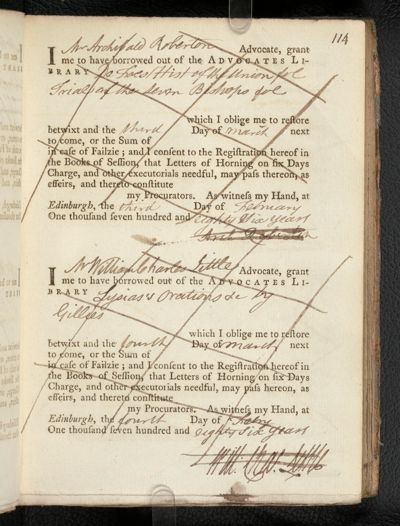 114
I Mr Archibald Roberton Advocate, grant
me to have borrowed out of the ADVOCATES LI-
BRARY De Foes Hist of the Union fol
Trial of the Seven Bishops fol
which I oblige me to restore
betwixt and the third Day of March next
to come, or the Sum of
in case of Failzie; and I consent to the Registration hereof in
the Books of Session, that Letters of Horning on six Days
Charge, and other executorials needful, may pass thereon, as
effeirs, and thereto constitute
my Procurators. As witness my Hand, at
Edinburgh, the third Day of February
One thousand seven hundred and eighty Six years
Arch Roberton
I Mr William Charles Little Advocate, grant
me to have borrowed out of the ADVOCATES LI-
BRARY Lysias's Orations &c by
Gillies
which I oblige me to restore
betwixt and the fourth Day of March next
to come, or the Sum of
in case of Failzie; and I consent to the Registration hereof in
the Books of Session, that Letters of Horning on six Days
Charge, and other executorials needful, may pass hereon, as
effeirs, and thereto constitute
my Procurators. As witness my Hand, at
Edinburgh, the fourth Day of
One thousand seven hundred and eighty Six years
Will: Char: Little